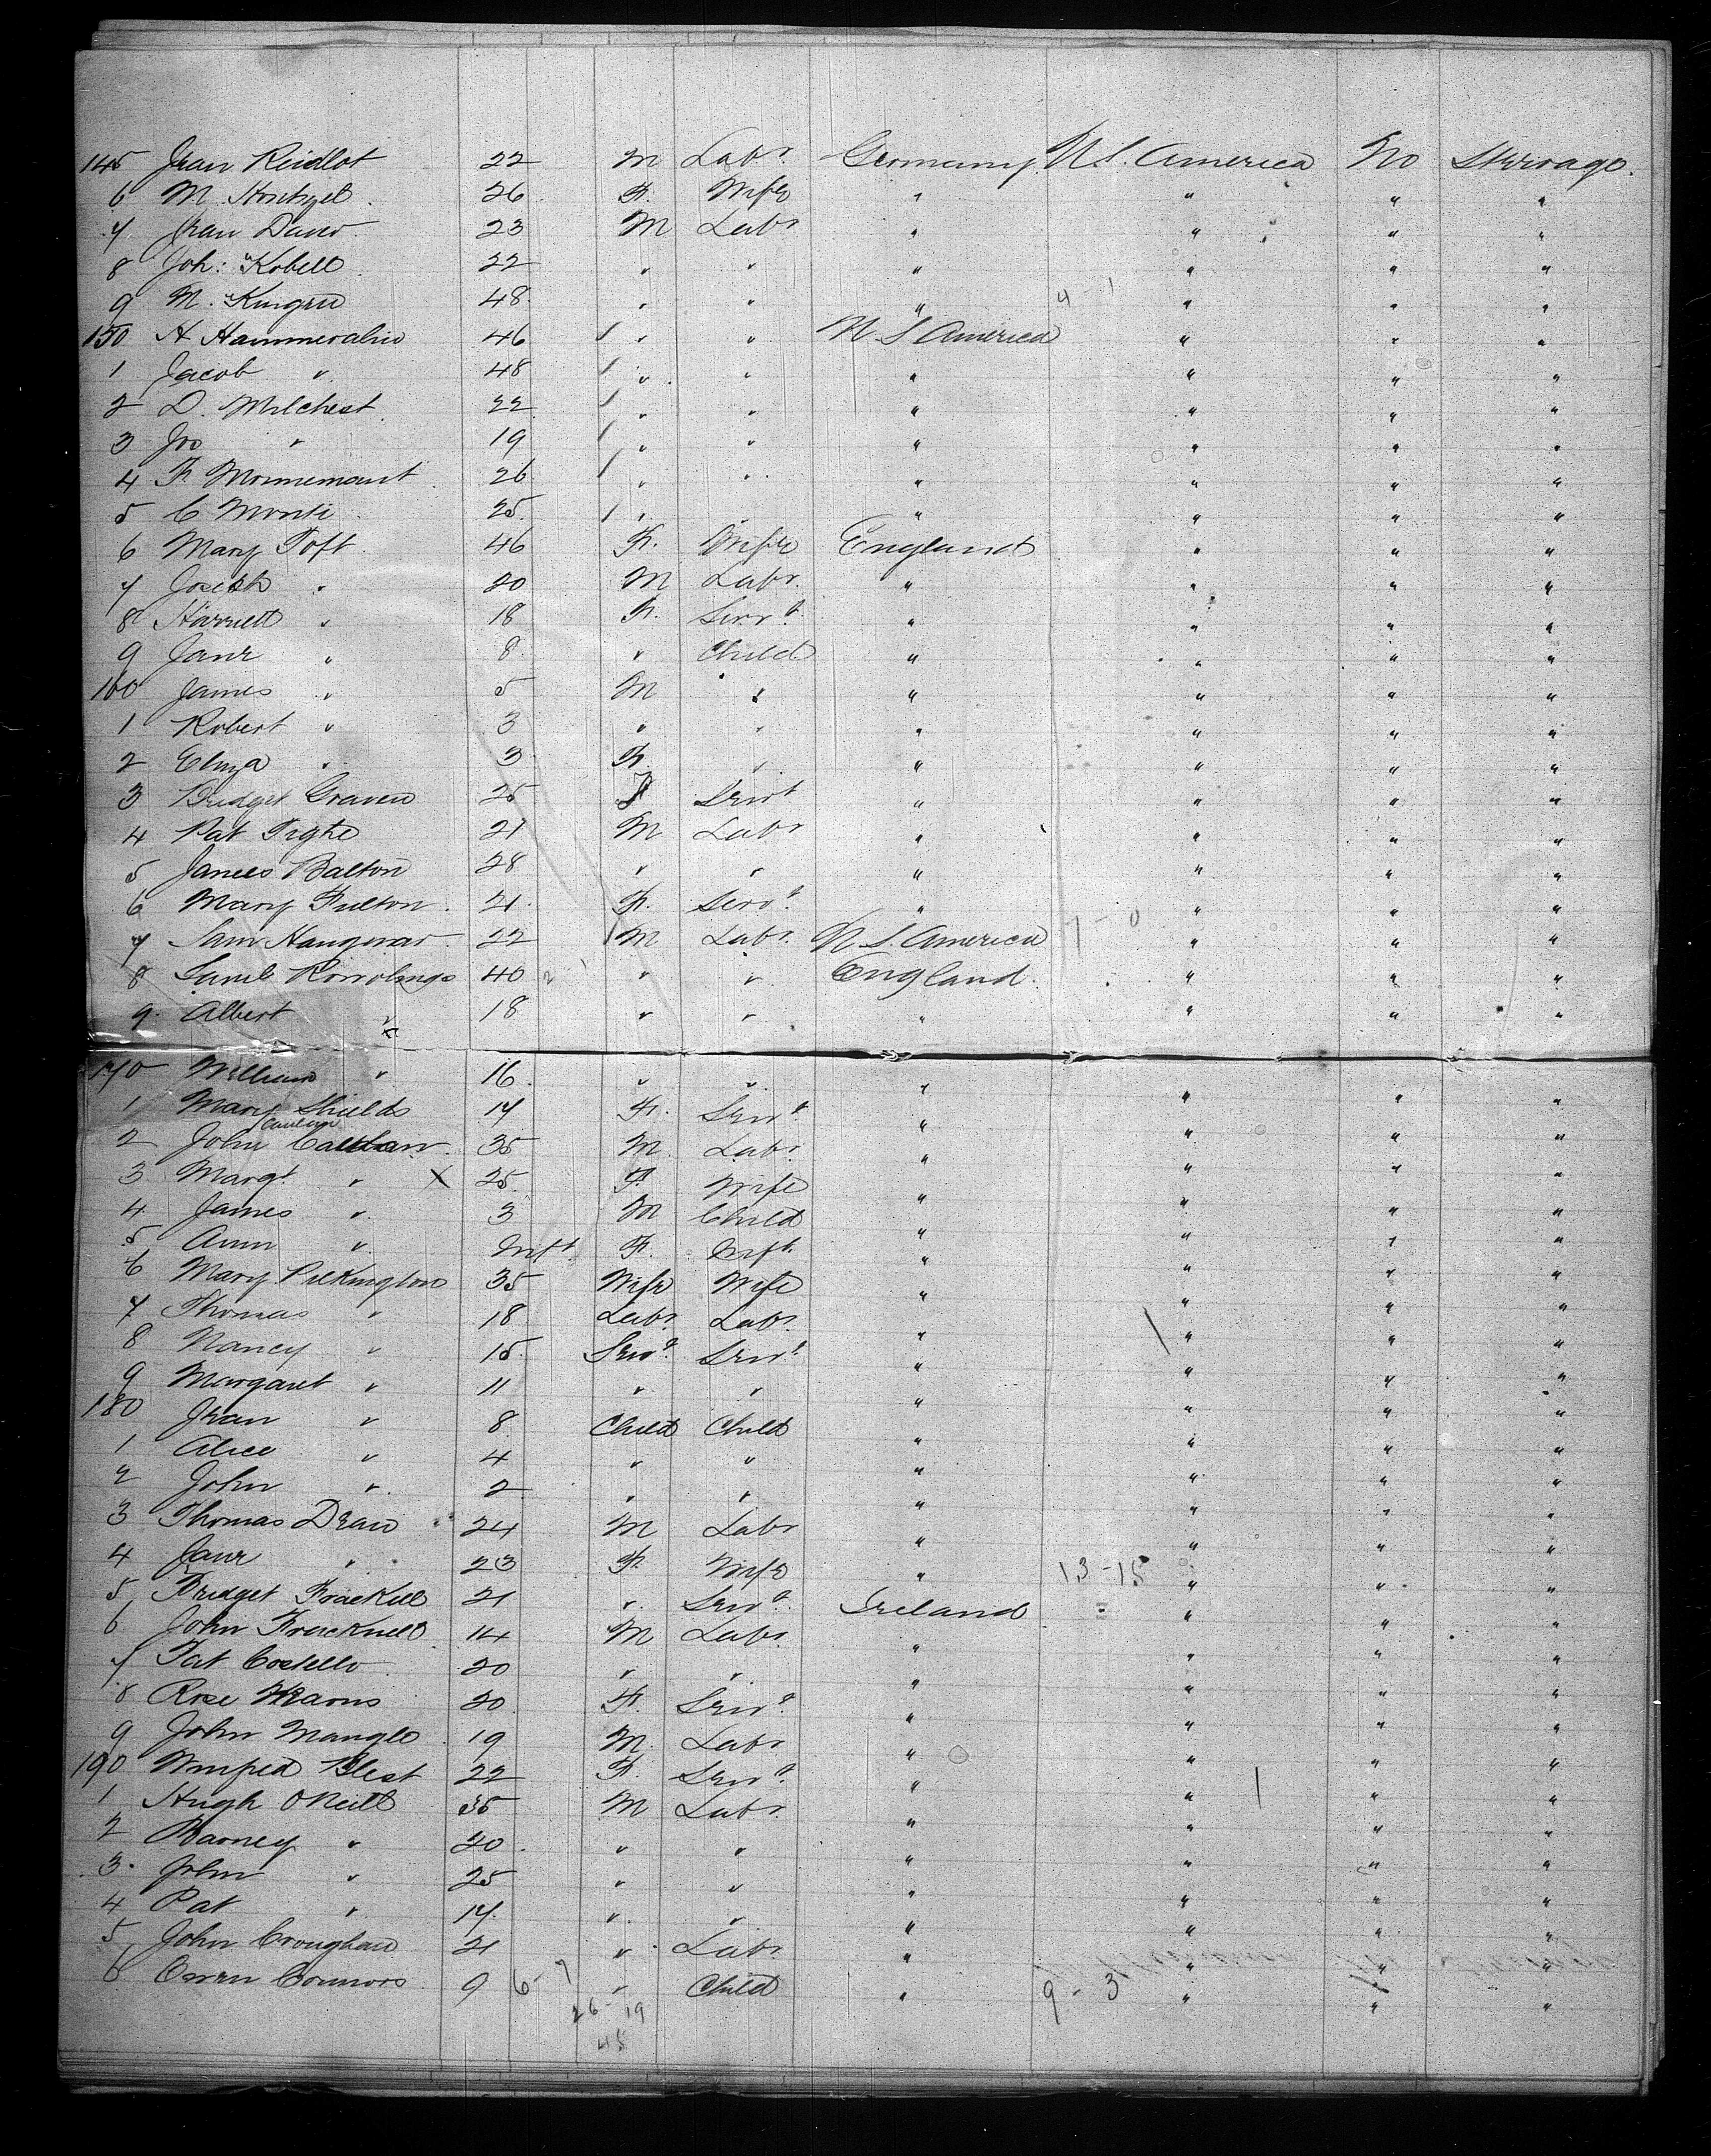 145 Jean Reidlot 22 M Labr. Germany U S. America No Steerage.
6 M. Hentzel 26 F. Wife " " " "
7 Jean Daur 23 M Labr " " " "
8 Joh: Kobell 22 " " " " " "
9 M. Kingru 48 " " " 4 - 1 " " "
150 A 46 / " " U S America " " "
1 Jacob " 48 / " " " " " "
2 D. Milchest 22 / " " " " " "
3 Jno " 19 / " " " " " "
4 F. 26 / " " " " " "
5 C Monti 25 / " " " " " "
6 Mary Toft 46 F. Wife England " " "
7 Joseph " 20 M Labr. " " " "
8 Harriett " 18 F. Servt. " " " "
9 Jane " 8 " Child " " " "
160 James " 5 M " " " " "
1 Robert " 3 " " " " " "
2 Eliza " 3 F. " " " " "
3 Bridget Graven 25 F Servt " " " "
4 Pat Tighe 21 M Labr " " " "
5 James Balton 28 " " " " " "
6 Mary Fulton 21 F. Servt. " " " "
7 Sam 22 / M Labr. U S. America 1 - 0 " " "
8 Saml Rowlings 40 " " England " " "
9 Albert " 18 " " " " " "
170 William " 16 " " " " " "
1 Mary Shields 17 F. Servt. " " " "
2 John 35 M. Labr. " " " "
3 Margt. " X 25 F. Wife " " " "
4 James " 3 M Child " " " "
5 Ann " Inft. F. Inft. " " " "
6 Mary Pilkington 35 Wife Wife " " " "
7 Thomas " 18 Labr. Labr. " " " "
8 Nancy " 15 Servt. Servt. " " " "
9 Margaret " 11 " " " " " "
180 Jean " 8 Child Child " " " "
1 Alice " 4 " " " " " "
2 John " 2 " " " " " "
3 Thomas Dean 24 M Labr " " " "
4 Jane " 23 F. Wife " 13 - 15 " " "
5 Bridget 21 " Servt. Ireland " " "
6 John 14 M Labr " " " "
7 Pat Costello 20 " " " " " "
8 Rose Kearns 20 F. Servt. " " " "
9 John Mangle 19 M. Labr " " " "
190 Winifred Blest 22 F. Servt. " " " "
1 Hugh ONeill 35 M Labr. " " " "
2 Barney " 20 " " " " " "
3 John " 25 " " " " " "
4 Pat " 17 " " " " " "
5 John Croughan 21 " Labr " " " "
6 Owen Connors 9 6 - 7 " Child " 9 - 3 " " "
26 - 19
45